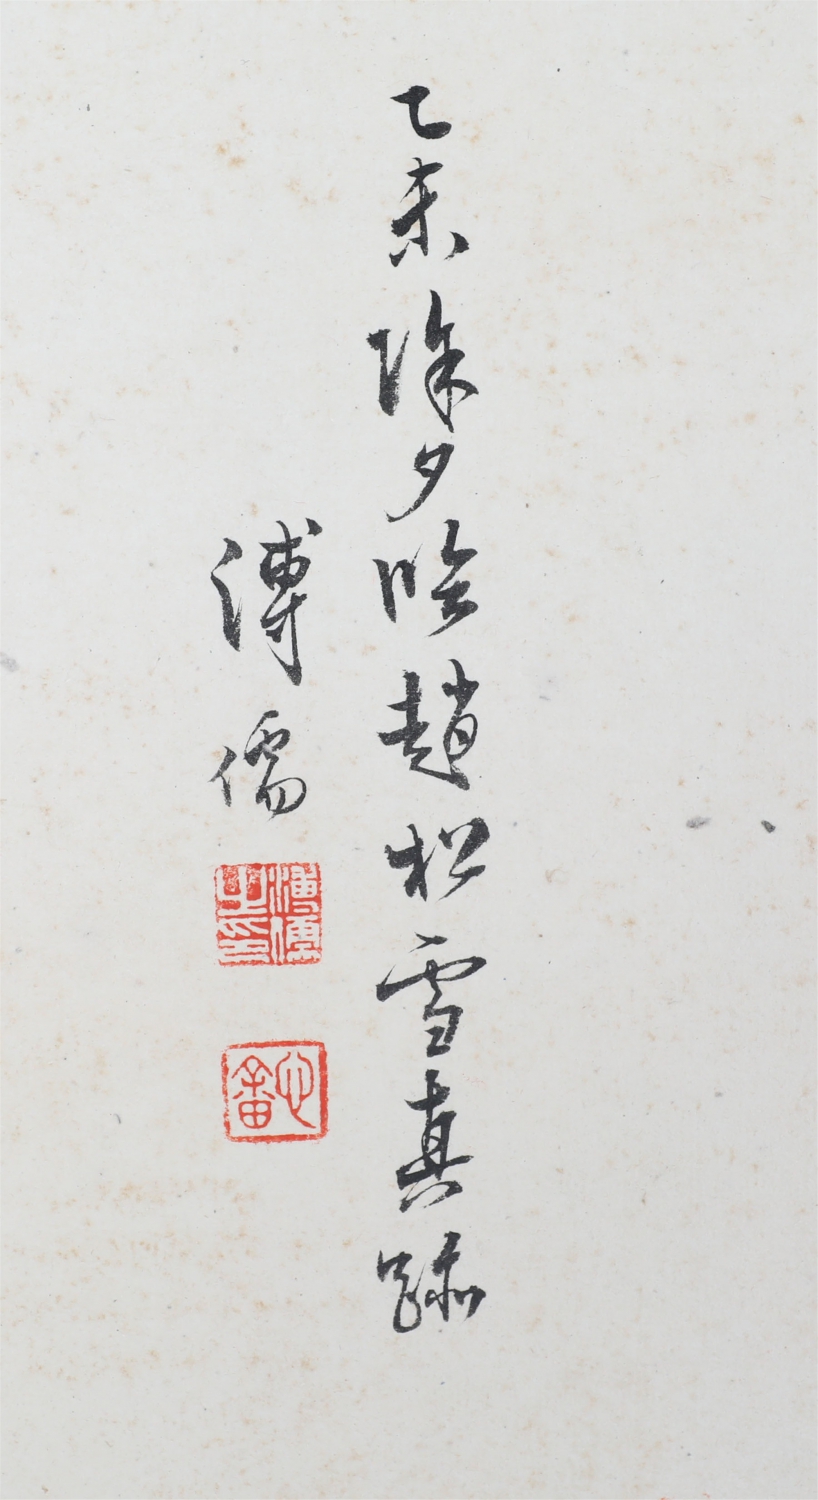 乙未除夕臨趙松雪真跡
溥儒
溥儒之印
心畬